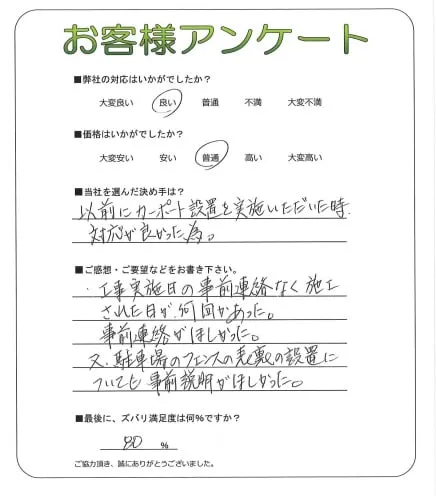 お客様アンケート
■弊社の対応はいかがでしたか?
大変良い 良い 普通 不満 大変不満
■価格はいかがでしたか?
大変安い 安い 普通 高い 大変高い
■当社を選んだ決め手は?
以前にカーポート設置を実施いただいた時
対応が良かった為。
■ご感想・ご要望などをお書き下さい。
・工事実施日の事前連絡なく施工
された日が、何回かあった。
事前連絡がほしかった。
又、駐車場のフェンスの表裏の設置に
ついても事前説明がほしかった。
■最後に、ズバリ満足度は何%ですか?
80 %
ご協力頂き、誠にありがとうございました。